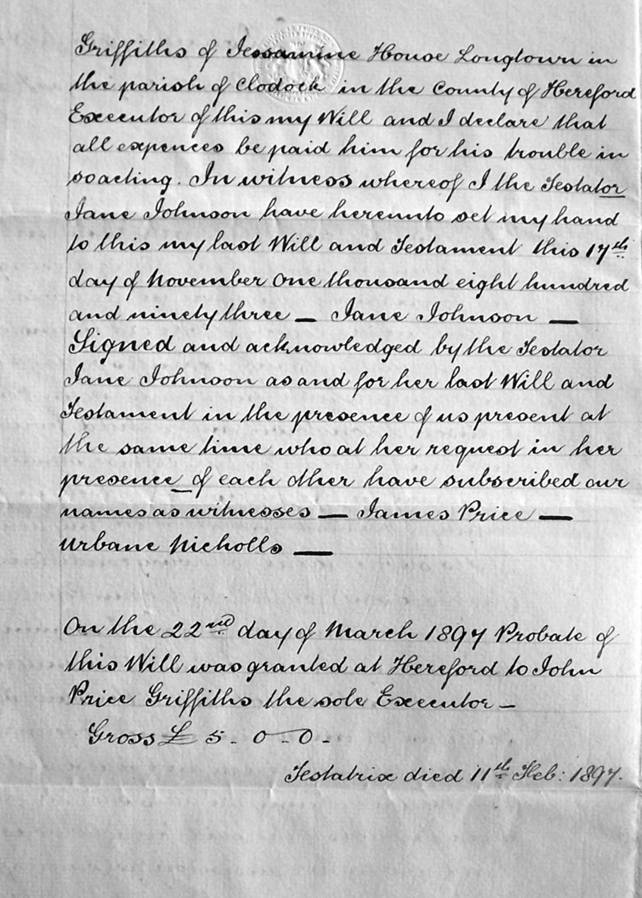 Griffiths of Jessamine House Longtown in
the parish of Clodock in the County of Hereford
Executor of this my Will and I declare that
all expences be paid him for his trouble in
so acting. In witness whereof I the Testator
Jane Johnson have hereunto set my hand
to this my last Will and Testament this 17th
day of November One thousand eight hundred
and ninety three — Jane Johnson —
Signed and acknowledged by the Testator
Jane Johnson as and for her last Will and
Testament in the presence of us present at
the same time who at her request in her
presence _ of each other have subscribed our
names as witnesses — James Price —
Urbane Nicholls —
On the 22nd day of March 1897 Probate of
this Will was granted at Hereford to John
Price Griffiths the sole Executor _
Gross £ 5 - 0 - 0 -
Testatrix died 11th Feb: 1897.